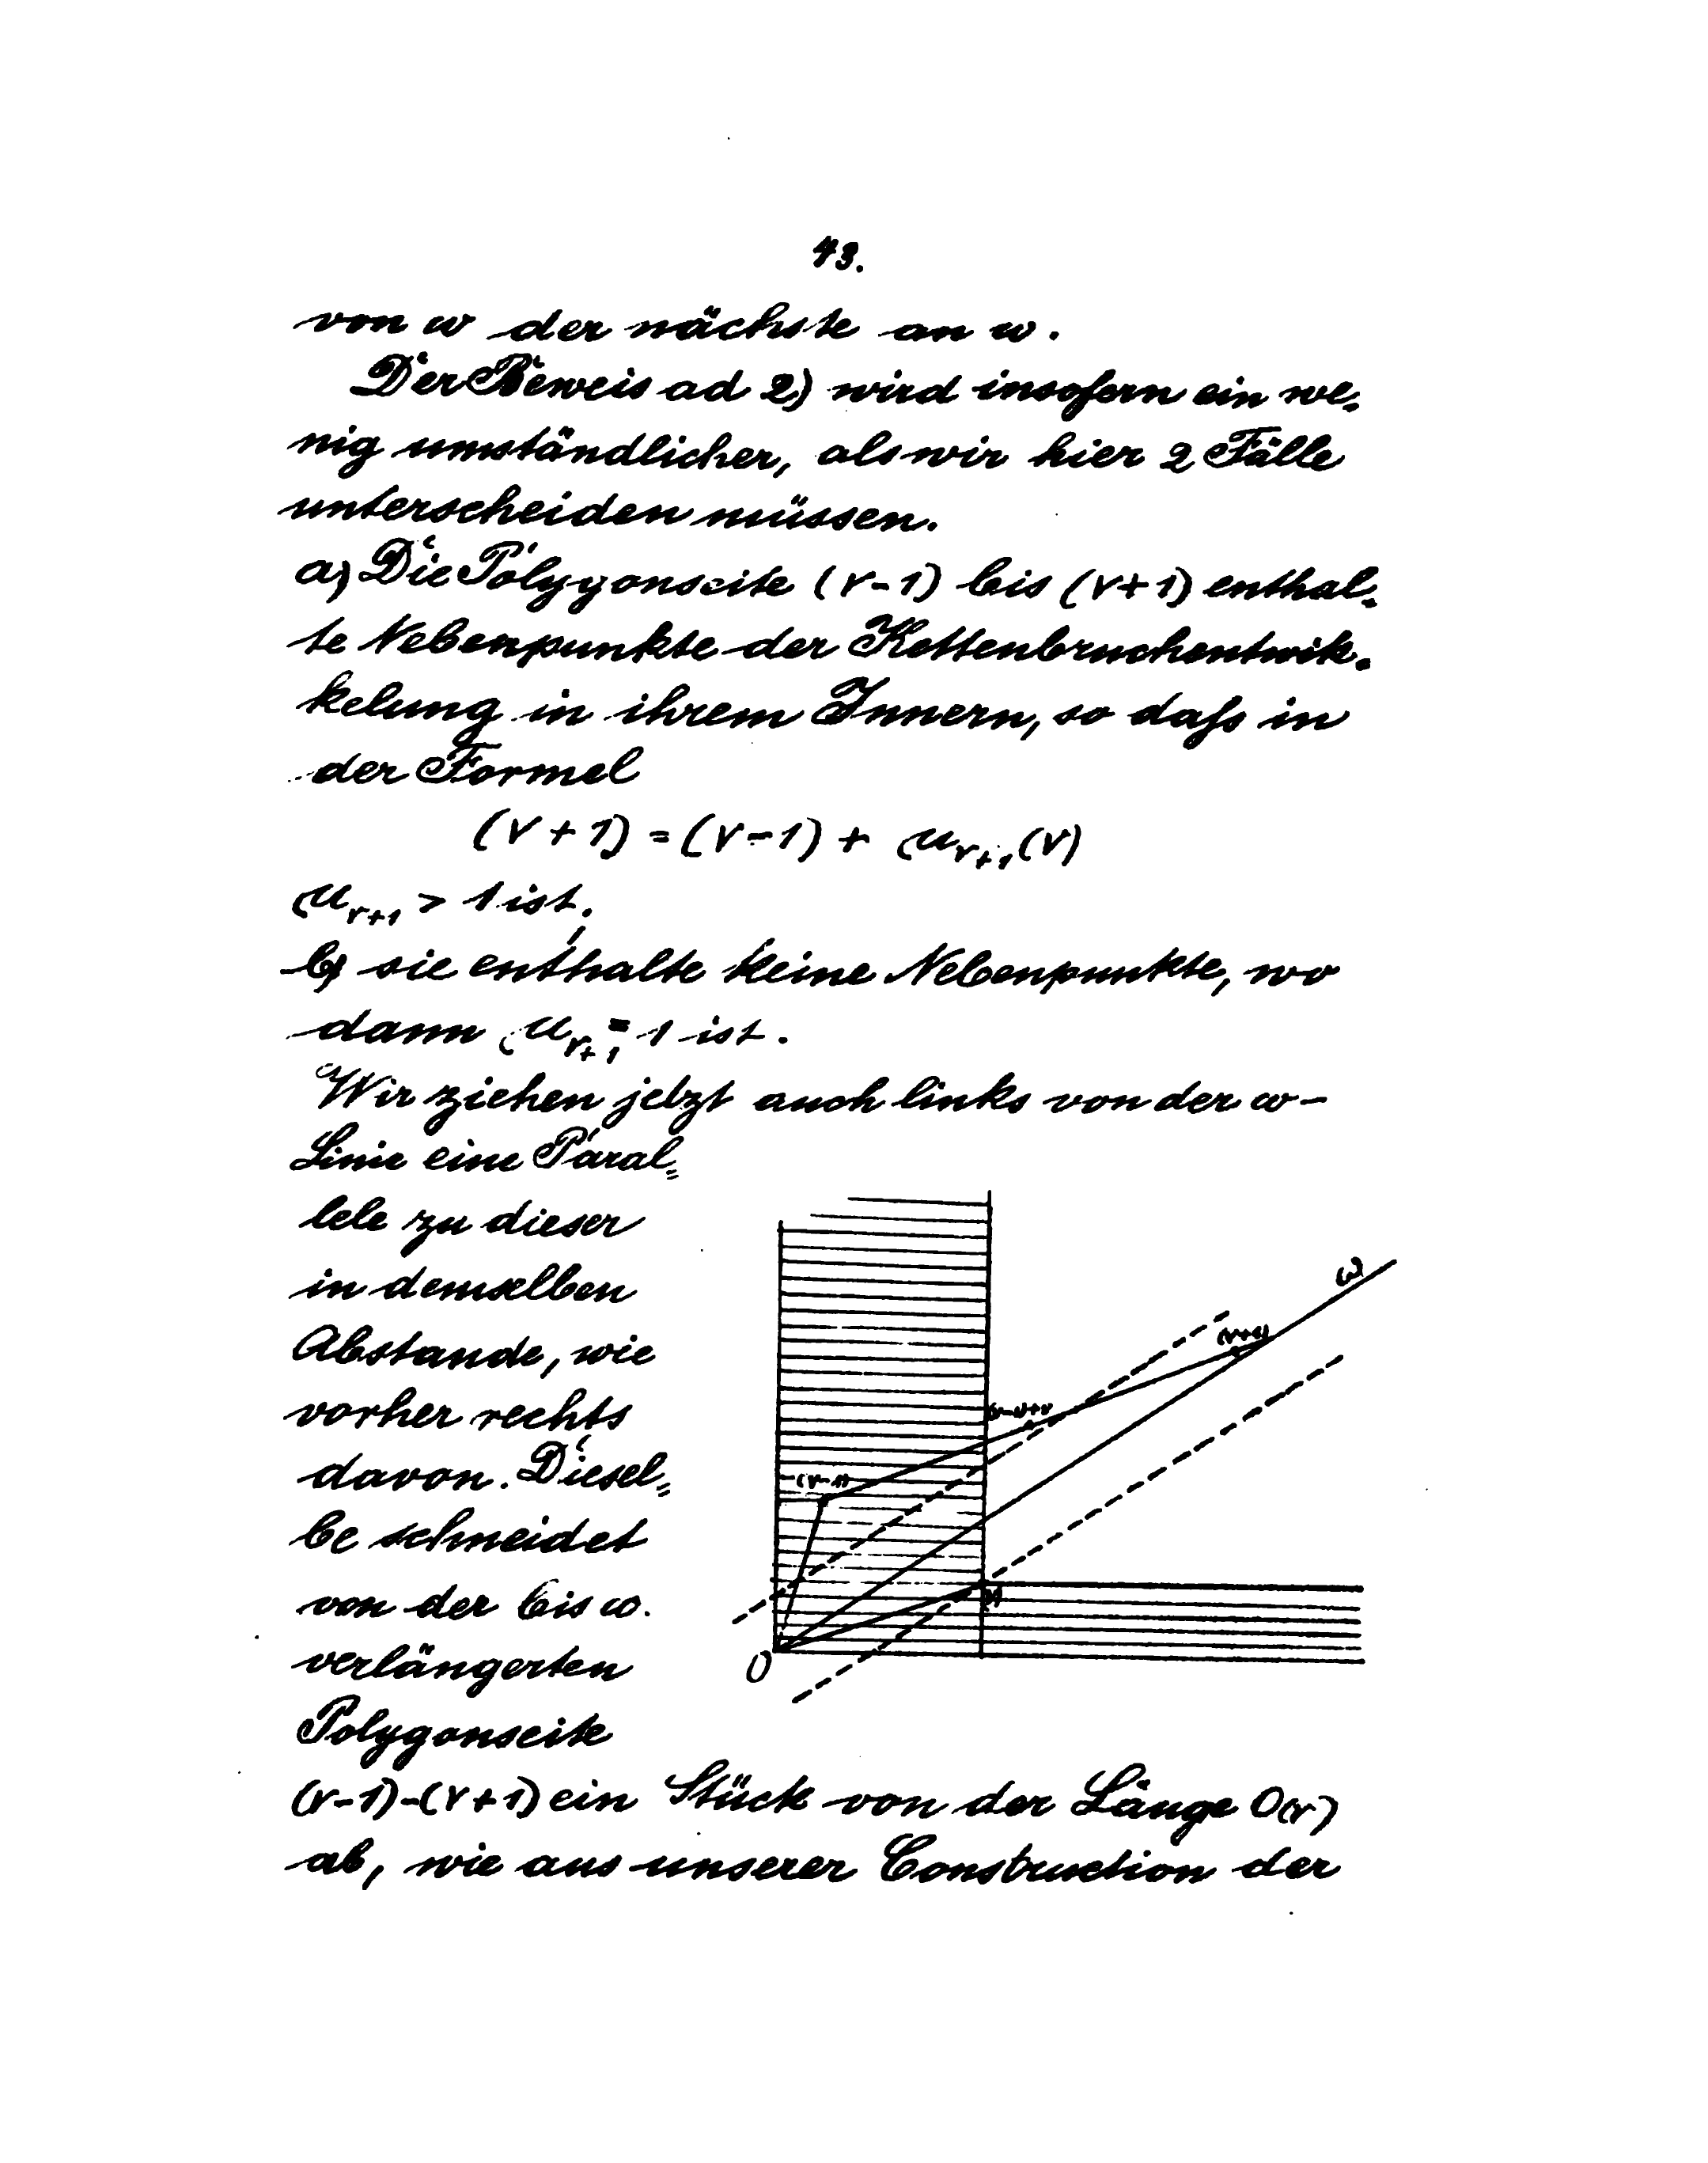 43.
von ω der nächste an ω.
Der Beweis ad 2) wird insofern ein we-
nig umständlicher, als wir hier 2 Fälle
unterscheiden müssen.
a) Die Polygonseite (ν-1) bis (ν+1) enthal-
te Nebenpunkte der Kettenbruchentwik-
kelung in ihrem Innern, so daſs in
der Formel
(ν+1) = (ν-1) + μ_{ν+1}(ν)
μ_{ν+1} > 1 ist;
b) sie enthalte keine Nebenpunkte, wo
dann μ_{ν+1} = 1 ist.
Wir ziehen jetzt auch links von der ω-
Linie eine Paral=
lele zu dieser
in demselben
Abstande, wie
vorher rechts
davon. Diesel=
be schneidet
von der bis ω.
verlängerten
Polygonseite
(ν-1)-(ν+1) ein Stück von der Länge O(ν)
ab, wie aus unserer Construction der
ω
(ν+1)
(ν-1)+ν
(ν-1)
(ν)
O